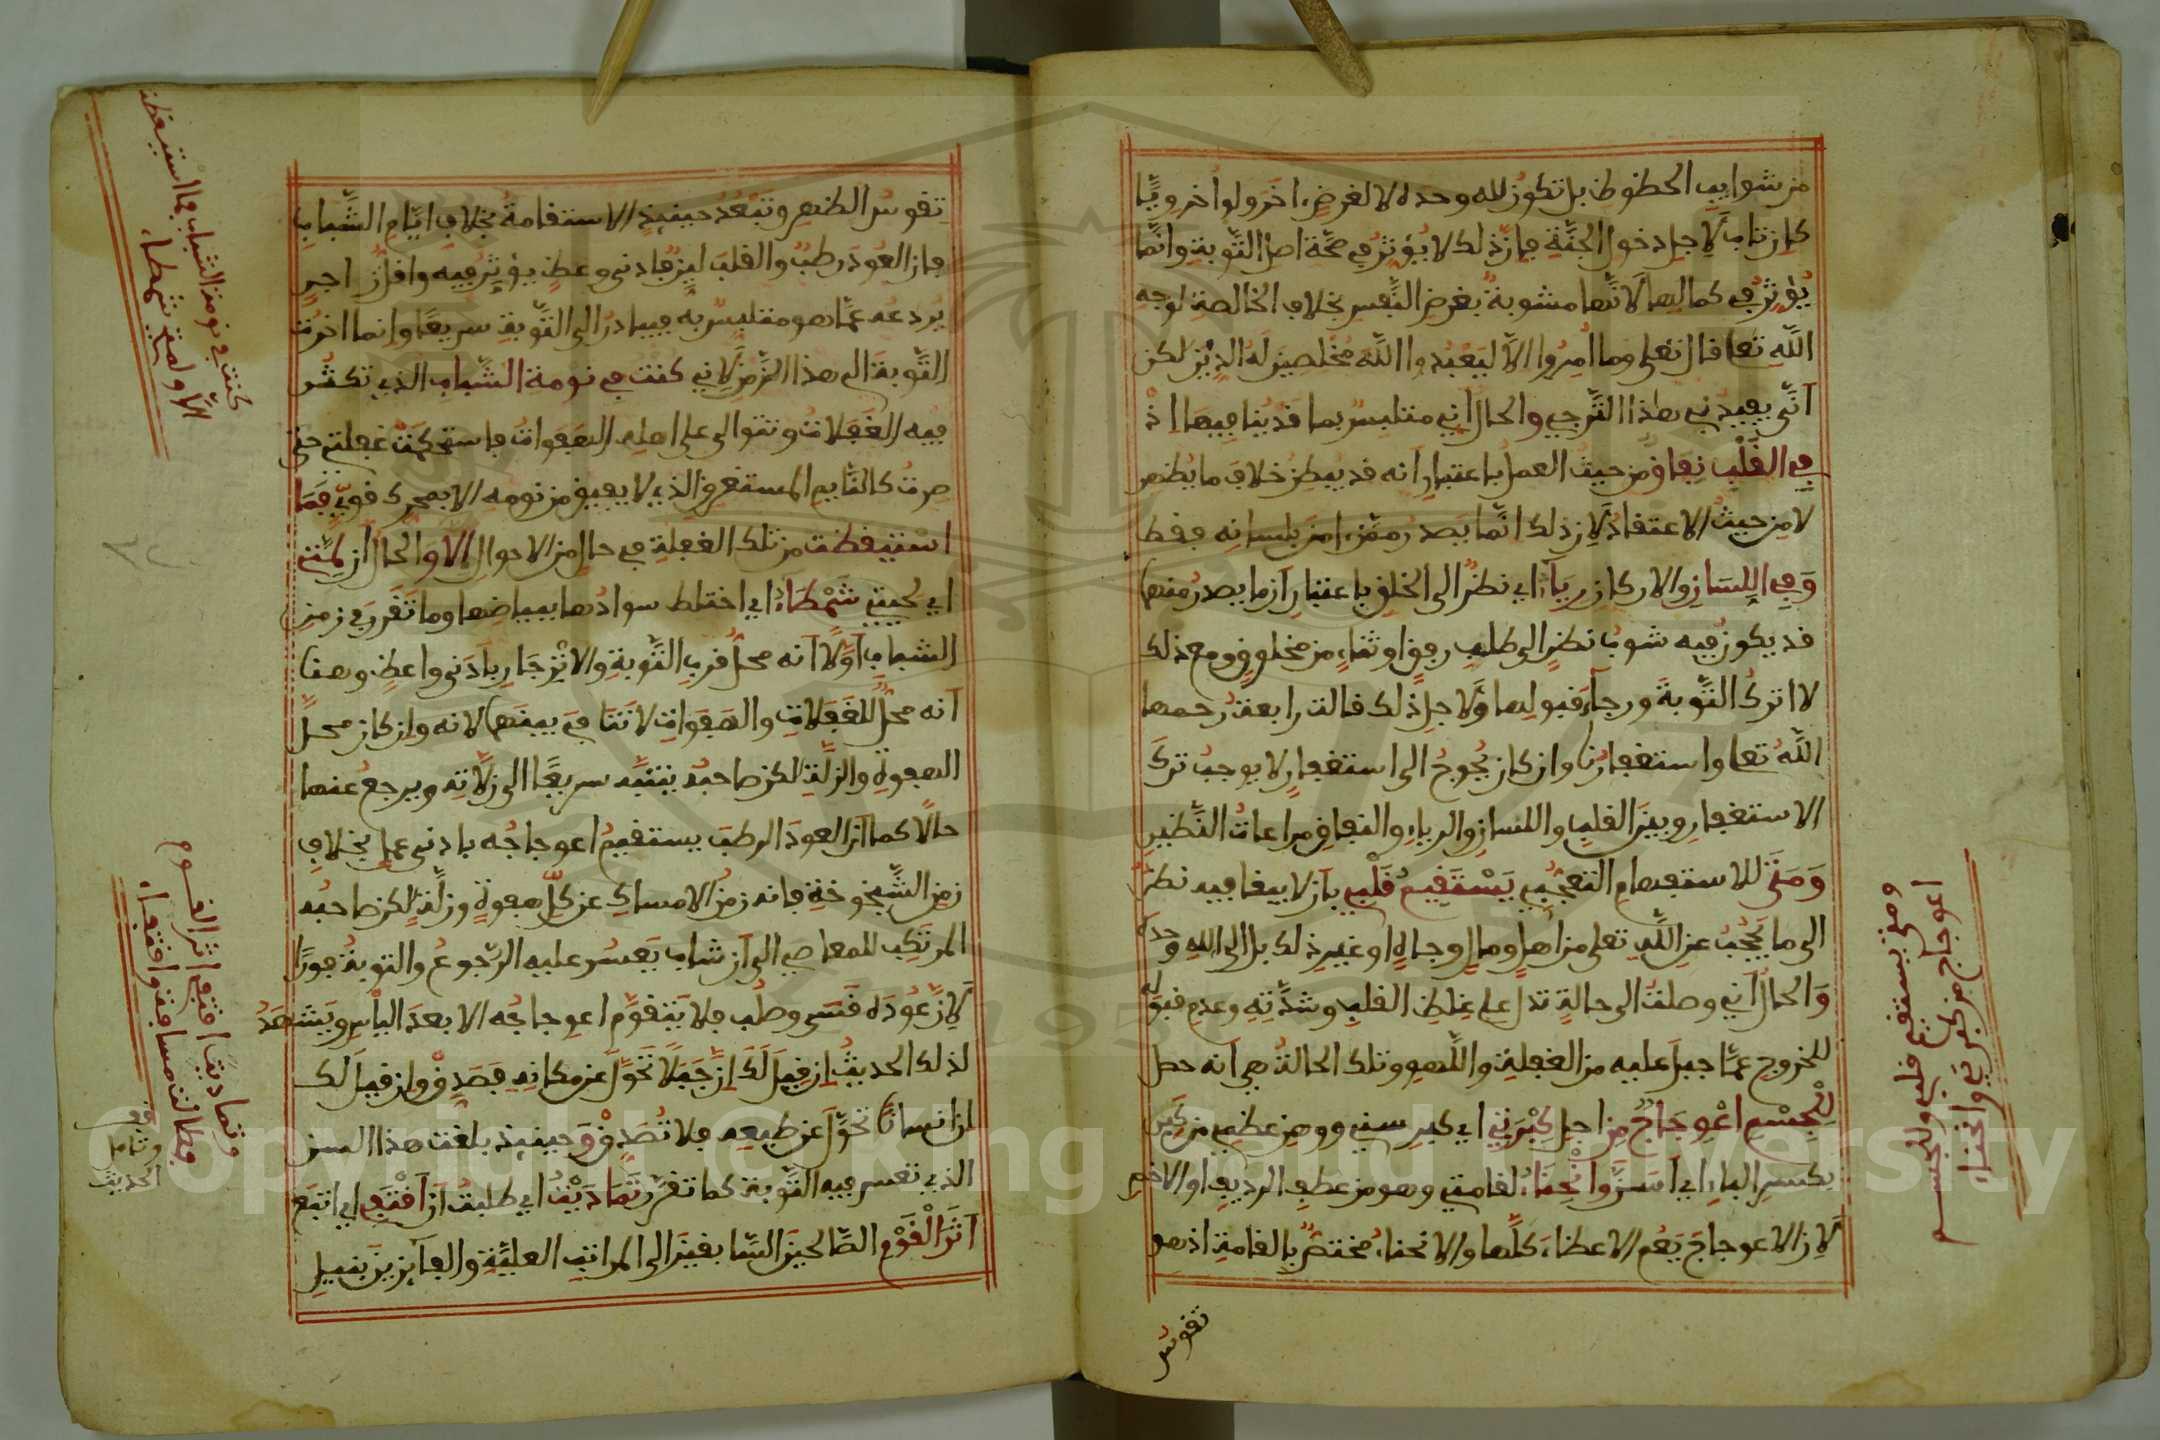 من شوايب الحظوظ بل تكون لله وحده لا لغرض اخر ولو اخرويًّا
كان تاب لاجل دخول الجنّة فانّ ذلك لا يُؤثر في صحّة اصل التّوبة وانّما
يُؤثر في كمالها لانّها مشوبةٌ بغرض النّفس بخلاف الخالصة لوجه
اللّه تعا قال تعلى وما اُمِروا الاّ ليَعْبُدوا اللّه مُخْلصين لهُ الدّين لكن
أنّى يفيدني هذا التّرجي والحال أني متلبسٌ بما قد ينافيها اذْ
في القَلْبِ نِفاقٌ من حيث العمل باعتبار أنه قد يبطن خلاف ما يُظهر
لا من حيث الاعتقاد لان ذلك انّما يَصدر ممّن امن بلسانه فقط
وَفي اللِسَان والاركان رِيَآءٌ اي نظرٌ الى الخلق باعتبار أن ما يصدر منها
قد يكون فيه شوبُ نظرٍ الى طلب رفقٍ اوثناءٍ من مخلوقٍ ومع ذلك
لا اترك التّوبةَ ورجآءَ قبولها ولاجل ذلك قالت رابعةُ رحمها
اللّهُ تعا واستغفارُنا وان كان يُحوجُ الى استغفارٍ لا يوجب ترك
الاستغفار وبينَ القلب واللسان والرياء والنفاق مراعات النّظير
وَمَتَى للاستفهام التعجّبي يَسْتَقِيمُ قَلْبي بأن لا يبقا فيه نظرٌ
الى ما يَحْجُبُ عن اللّه تعلى من اهلٍ ومالٍ وجاهٍ او غير ذلك بل الى الله وحده
وَالحال أني وصلتُ الى حالةٍ تدل على غلظ القلب وشدّته وعدم قبوله
للخروج عمّا جبل عليه من الغفلة واللّهو وتلك الحالة هي أنه حصل
لِلجِسْمِ اعْوِجَاجٌ مِن اجل كِبْرَتِي اي كبر سني ووهن عظمي من كَبِرَ
بكسر الباء اي أسَنَّ وَانْحِنَاءٌ لقامتي وهو من عطف الرديف او الاخص
لان الاعوجاج يَعُم الاعضاء كلّها والانحناء مختصٌّ بالقامة اذ هو
تقوّسُ
ومتى يستقيم قلبي وللجسم
اعوجاج من كبرتي وانحناء
تقوّسُ الظهر وتَبْعُدُ حينئذٍ الاستقامةُ بخلاف ايّام الشّباب
فان العُودَ رطبٌ والقلبَ ليّن فادنى وعظٍ يؤثر فيه واقلّ اجرٍ
يُردعه عمّا هو متلبسٌ به فيبادرُ الى التّوبة سريعًا وانما اخرّت
التّوبة الى هذا الزّمن لاني كنت في نومة الشّباب الذي تكثر
فيه الغَفلاتُ وتتوالى على اهله الهَفَواتُ فاستحكمَتْ غفلتي حتى
صرتُ كالنّايم المستغرق الذي لا يفيق من نومه الا بمحرك قويّ فَمَا
اسْتَيْقَظت من تلك الغفلة في حالٍ من الاحوال الاّ وَالحال أن لِمَّتي
اي لحيتي شَمْطاءُ اي اختلط سوادُها ببياضها وما تَقرر في زمن
الشباب اَوّلاً أنه محلّ قرب التّوبة والانْزِجَار بادنى واعظٍ وهنا
أنه محلٌّ للغَفَلات والهَفَوات لا تَنَافِيَ بينهما لانه وان كان محل
الهفوة والزّلّة لكن صاحبه ينتبه سريعًا الى زلاّته ويرجع عنها
حالاً كما أن العودَ الرطبَ يستقيمُ اعوجاجُه بادنى عملٍ بخلاف
زمن الشّيخوخة فانه زمنُ الامساك عن كلّ هفوةٍ وزلّةٍ لكن صاحبه
المرتكب للمعاصي الى أن شاب يَعسُر عليه الرّجوعُ والتوبةُ فورًا
لاَنّ عُودَه قَسَى وصلُب فلا يَتقوَّم اعوجاجُه الا بعدَ اليأس ويَشهدُ
لذلك الحديثُ ان قيلَ لَكَ اِنّ جَبَلاً تحَوَّلَ عن مكانه فصَدّقْ وان قيل لك
ان انسانًا تحَوّلَ عن طبعه فلا تُصَدّقْ وَحينئذ بلغت هذا السن
الذي تعسر فيه التّوبة كما تقرّر تَمَادَيْتُ اي طلبتُ أن أقْتَفِي اي اتبَع
أثَرَ الْقَوْم الصّالحين السّابقين الى المراتب العليّة والفآئزين بنيل
كنت في نومة الشباب فما استيقظت
الا ولمتي شمطاء
وتماديت اقتفي اثر القوم
فطالت مسافة واقتفاء
قف
وتامل
الحديث